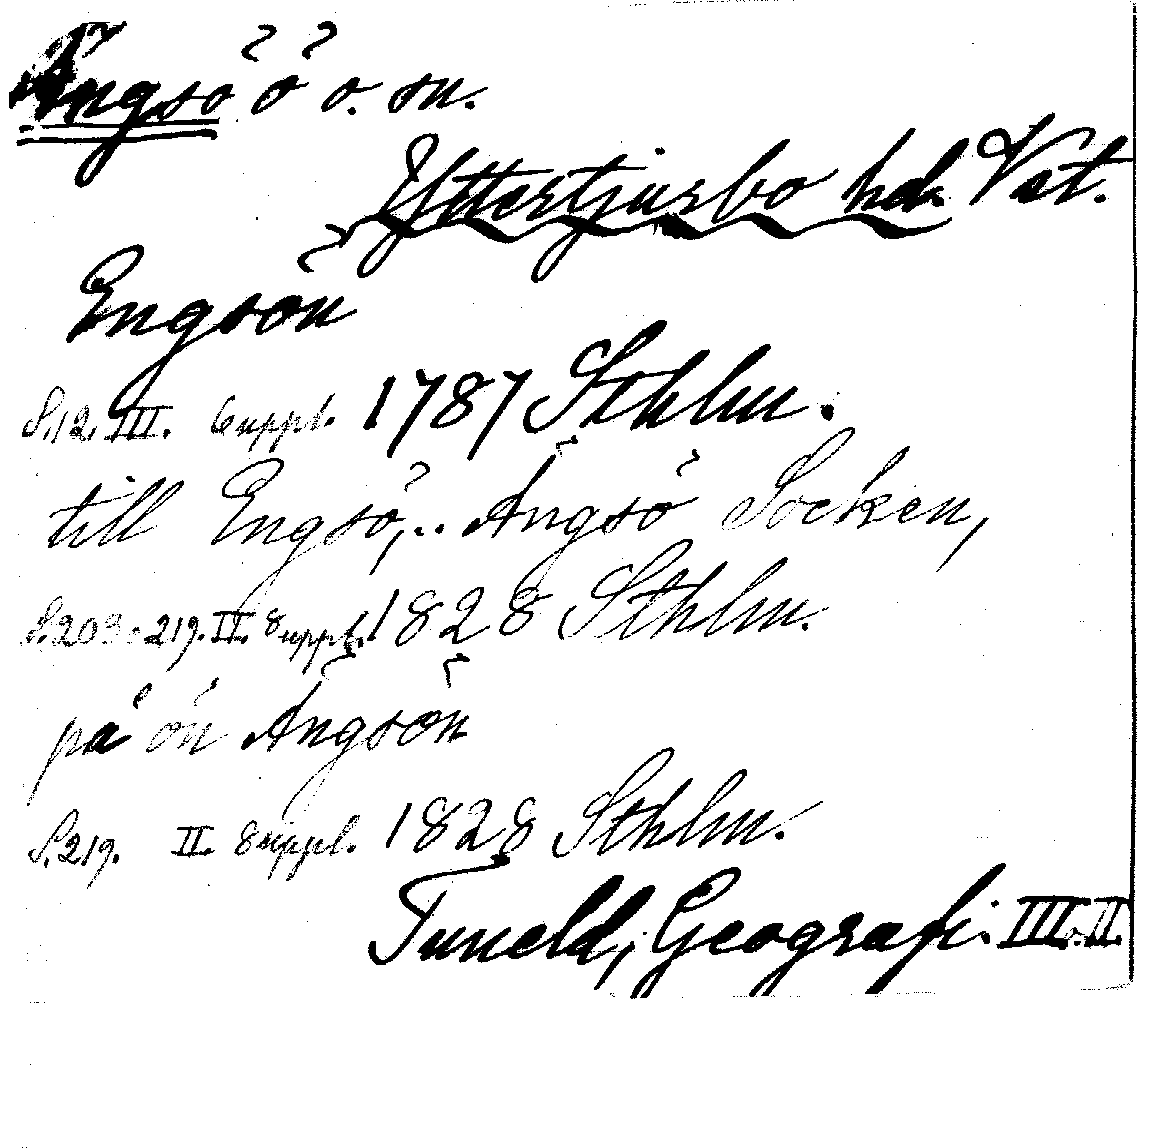 Ängsö ö o. sn.
Yttertjurbo hd. Vst.
Engsön
S.12. III. 6 uppl. 1787 Sthlm.
till Engsö,.. Ängsö Socken,
S.203-219. II. 8 uppl. 1828 Sthlm.
på ön Ängsön
S.219. II. 8 uppl. 1828 Sthlm.
Tuneld, Geografi. III. II.